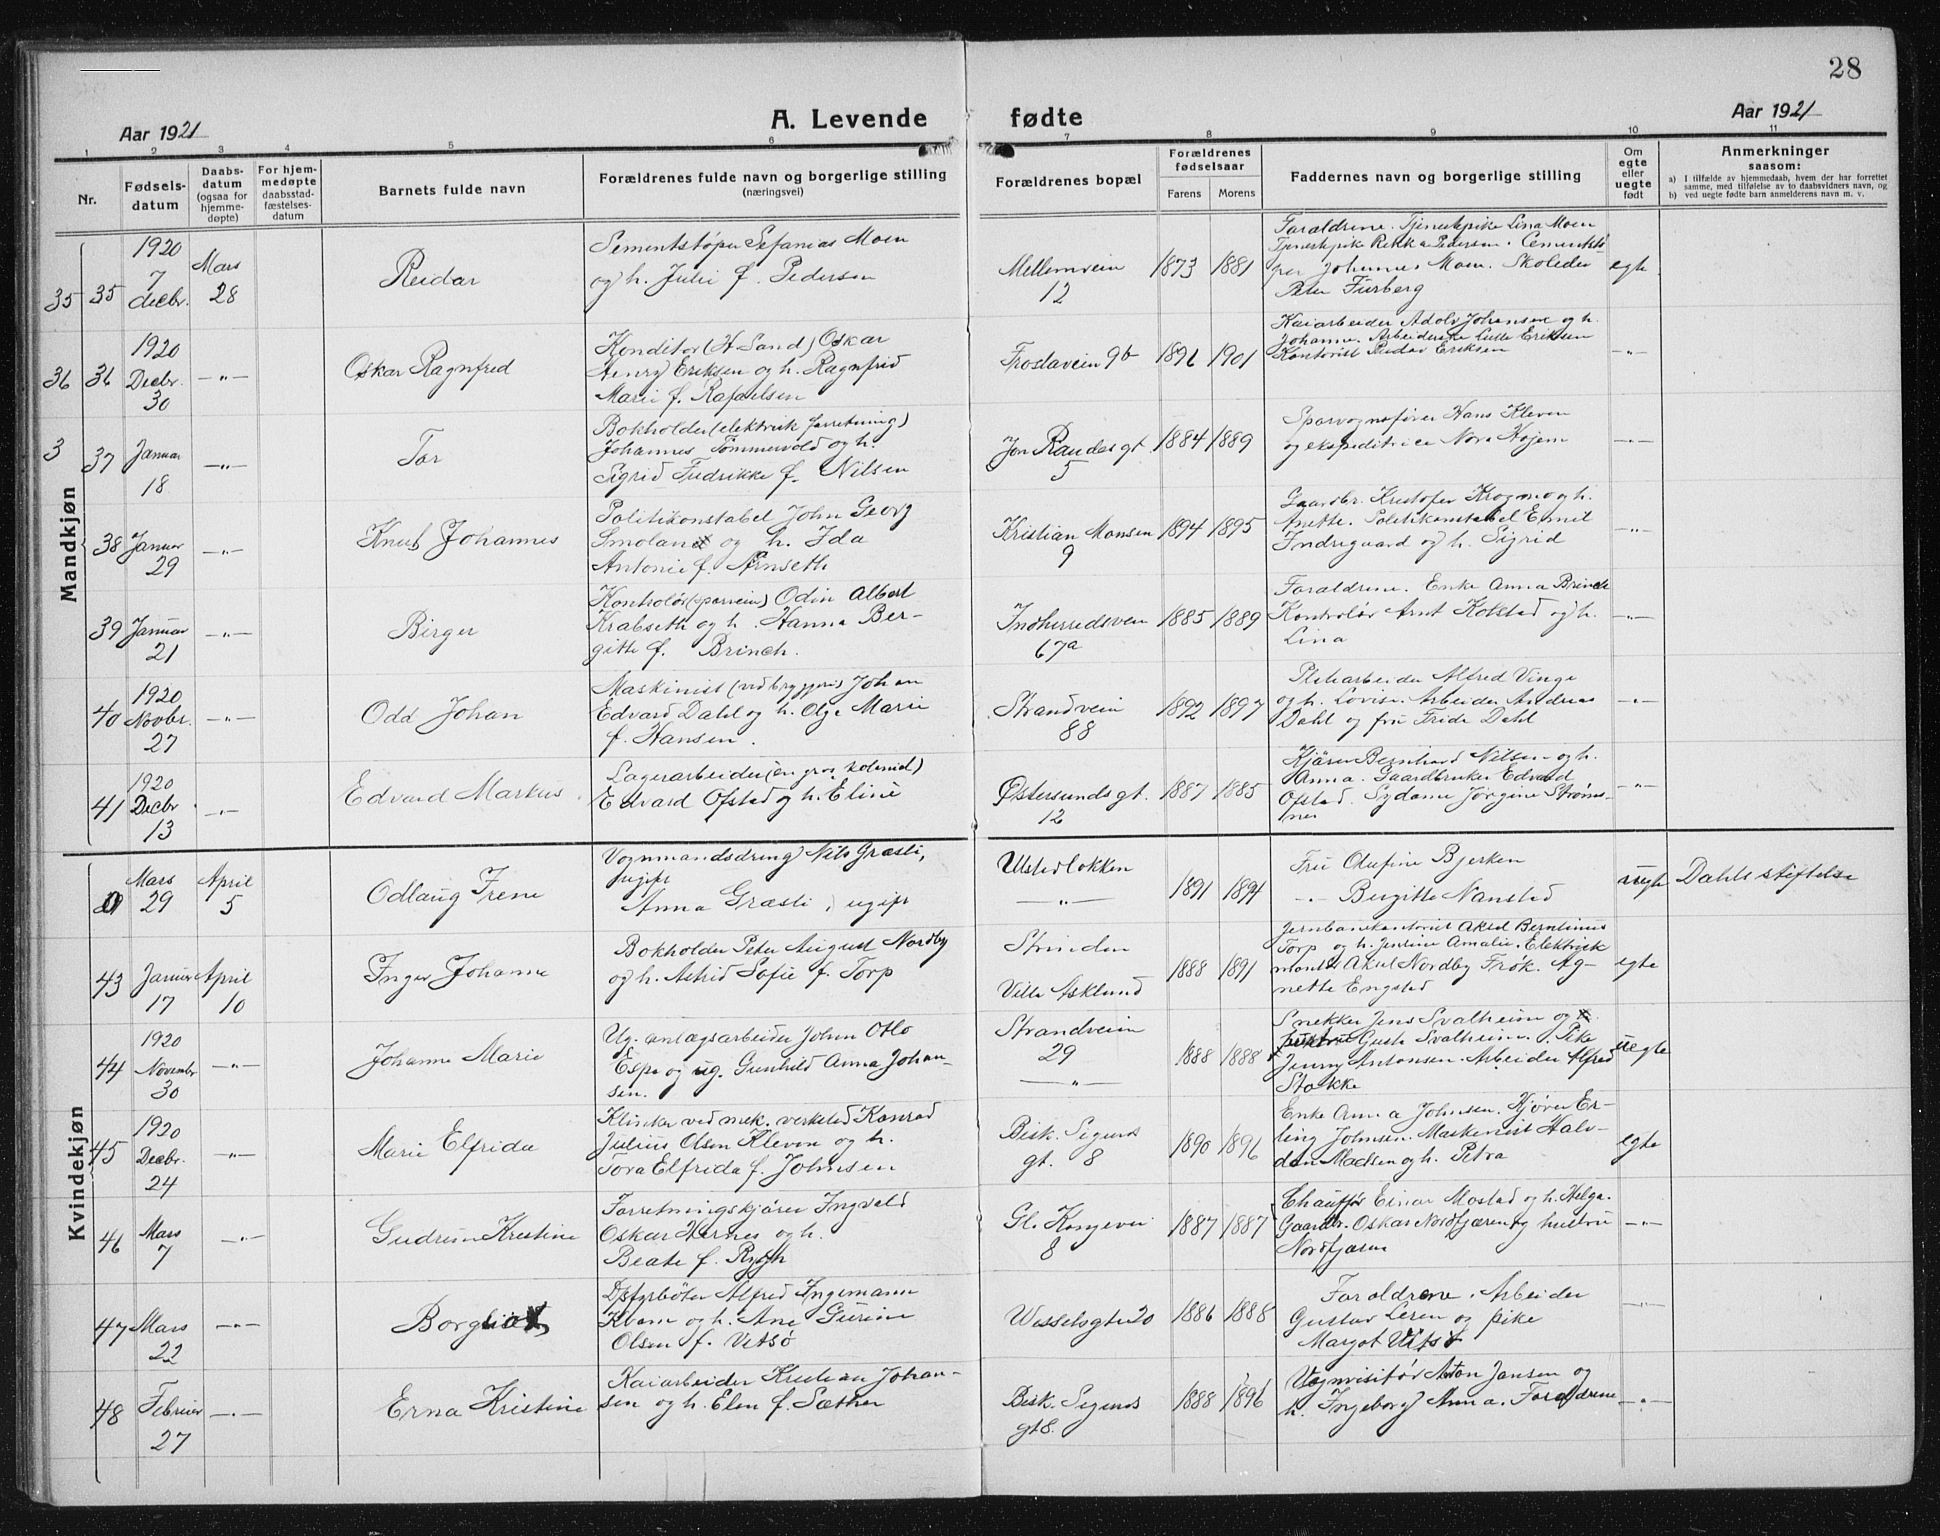 28
Aar 1921
A. Levende fødte
Aar 1921
1 2 3 4 5 6 7 8 9 10 11
Nr.
Fødsels-
datum
Daabs-
datum
(ogsaa for
hjemme-
døpte)
For hjem-
medøpte
daabsstad-
fæstelses-
datum
Barnets fulde navn
Forældrenes fulde navn og borgerlige stilling
(næringsvei)
Forældrenes bopæl
Forældrenes
fødselsaar
Farens Morens
Faddernes navn og borgerlig stilling
Om
egte
eller
uegte
født
Anmerkninger
saasom:
a) I tilfælde av hjemmedaab, hvem der har forrettet
samme, med tilføielse av to daabsvidners navn, og
b) ved uegte fødte barn anmelderens navn m. v.
Mandkjøn
35 35
1920
7
decbr.
Mars
28
Reidar
Sementstøper Sefanias Moen
og h. Julie f. Pedersen
Mellemveien
12
1873 1881
Forældrene. Tjenestepike Lina Moen
Tjenestepike Rekka Pedersen. Cementstø-
per Johannes Moen. Skoleder
Peter Furberg
egte
36 36
1920
Decbr.
30
-"-
Oskar Ragnfred
Konditor (H. Sand) Oskar
Henry Eriksen og h. Ragnfrid
Marie f. Rafaelsen
Frostaveien 9b
1896 1901
Kaiarbeider Adolv Johansen og h.
Johanne. Arbeiderske Lulle Eriksen
Kontorist Reidar Eriksen
-"-
3 37
Januar
18
-"-
Tor
Bokholder (elektrisk forretning)
Johannes Tømmervold og h.
Sigrid Fredrikke f. Nilsen
Jon Raudes gt.
5
1884 1889
Sporvognsfører Hans Kleven
og ekspeditrice Nora Hojem
-"-
38
Januar
29
-"-
Knut Johannes
Politikonstabel John Georg
Smoland og h. Ida
Antonie f. Arnseth
Kristian Monsen
9
1894 1895
Gaardbr. Kristofer Krogmo og h.
Anette. Politikonstabel Emil
Indregaard og h. Sigrid
-"-
39
Januar
21
-"-
Birger
Kontrolør (sporvein) Odin Albert
Krabseth og h. Hanna Ber-
gitte f. Brinch.
Indherredsveien
67a
1885 1889
Forældrene. Enke Anna Brinch
Kontrolør Arnt Kolstad og h.
Lina
-"-
40
1920
Novbr.
27
-"-
Odd Johan
Maskinist (ved bryggeri) Johan
Edvard Dahl og h. Olga Marie
f. Hansen.
Strandveien
88
1892 1897
Platearbeider Alfred Vinge
og h. Lovise. Arbeider Andreas
Dahl og fru Frida Dahl
-"-
41
1920
Decbr
13
-"-
Edvard Markus
Lagerarbeider (en gros kolonial)
Edvard Ofstad og h. Eline
Østersunds gt.
12
1887 1885
Kjører Bernhard Nilsen og h.
Anna. Gaardbruker Edvard
Ofstad. Sydame Jørgine Strøms-
nes
-"-
Kvindekjøn
Mars
29
April
5
Odlaug Irene
Vognmandsdreng Nils Græsli,
ugift
Anna Græsli, ugift
Ulstedløkken
-"-
1891 1894
Fru Olufine Bjerken
-"- Birgitte Nansted
uegte
Dahls stiftelse
43
Januar
17
April
10
Inger Johanne
Bokholder Peter August Nordby
og h. Astrid Sofie f. Torp
Strinden
Villa Asklund
1888 1891
Jernbanekontorist Aksel Berntinus
Torp og h. Jensine Amalie. Elektrisk
montør Aksel Nordby Frøk. Ag-
nette Engstad
egte
44
1920
Novembr
30
-"-
Johanne Marie
Ug. anlægsarbeider Johan Otto
Espe og ug. Gunhild Anna Johan-
sen.
Strandveien
29
-"-
1888 1888
Snekker Jens Svalheim og
hustru Gusta Svalheim. Pike
Jenny Antonsen. Arbeider Alfred
Stokke
uegte
45
1920
Decbr.
24
-"-
Marie Elfrida
Klinker ved mek. verksted Konrad
Julius Olsen Kleven og h.
Tora Elfrida f. Johnsen
Bisk. Sigurds
gt. 8
1890 1896
Enke Anna Johnsen. Kjører Er-
ling Johnsen. Maskinist Halv-
dan Madsen og h. Petra
egte
46
Mars
7
-"-
Gudrun Kristine
Forretningskjører Ingvald
Oskar Hernes og h.
Beate f. Rygh
Gl. Kongevei
8
1887 1887
Chauffør Einar Mostad og h. Helga.
Gaardbr. Oskar Nordfjæren og hustru
Nordfjæren
-"-
47
Mars
22
-"-
Borgliot
Dpfyrbøter Alfred Ingemann
Kvam og h. Ane Gurine
Olsen f. Vitsø
Wesselsgten 20
1886 1888
Forældrene. Arbeider
Gustav Leren og pike
Margot Vitsø
-"-
48
Februar
27
-"-
Erna Kristine
Kaiarbeider Kristian Johan-
sen og h. Elen f. Sæther
Bisk. Sigurds
gt 8.
1888 1896
Vognvisitør Anton Jansen og
h. Ingeborg Anna. Forældrene
-"-